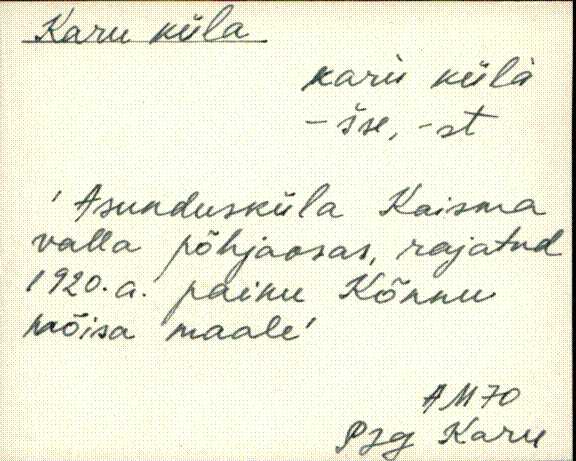 Karu küla
karù külà
- šse, -st
' Asundusküla Kaisma
valla põhjaosas, rajatud
1920.a. paiku Kõnnu
mõisa maale'
AM70
PJg Karu